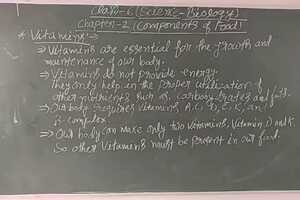 Class-6 (Science-Biology)
Chapter-2 (Components of Food)
* Vitamins :→
⇒ Vitamins are essential for the growth and
maintenance of our body.
⇒ Vitamins do not provide energy.
They only help in the proper utilization of
other nutrients such as carbohydrates and fats.
⇒ Our body requires vitamins A, C, D, E, K and
B-complex.
⇒ Our body can make only two vitamins, Vitamin D and K.
So other vitamins must be present in our food.